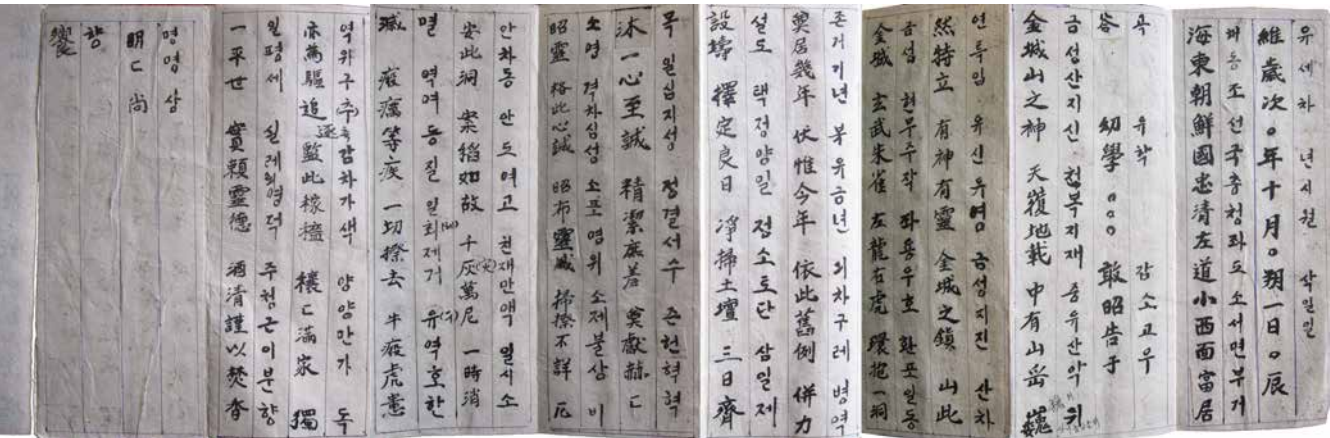 유세차 년시월 삭일일
維歲次○年十月○朔一日○辰
해동조선국충청좌도 소서면부거
海東朝鮮國忠清左道小西面富居
곡 유학 감소고우
谷 幼學 ○○○ 敢昭告于
금성산지신 천복지재 중유산악 위
金城山之神 天覆地載 中有山岳 巍
연특입 유신유영 금성지진 산차
然特立 有神有靈 金城之鎮 山此
금성 현무주작 좌용우호 환포일동
金城 玄武朱雀 左龍右虎 環抱一洞
존거기년 복유금년 의차구례 병역
奠居幾年 伏惟今年 依此舊例 併力
설도 택정양일 정소토단 삼일제
設壔 擇定良日 淨掃土壇 三日齊
목 일심지성 정결서수 존헌혁혁
沐 一心至誠 精潔庶羞 奠獻赫ㄷ
소영 격차심성 소포영위 소제불상 비
昭靈 格此心誠 昭布靈威 掃除不詳 厄
안차동 안도여고 천재만액 일시소
安此洞 案稻如故 千灰(灾)萬厄 一時消
멸 역여동질 일희제거 우역호한
滅 疫癘等疾 一切除去 牛疫虎患
역위구(추) 감차가색 양양만가 독
亦為驅追逐 監此稼穡 穰ㄷ滿家 獨
일평세 실레영덕 주청근이분향
一平世 實賴靈德 酒清謹以焚香
명명상
明ㄷ尚
향
饗